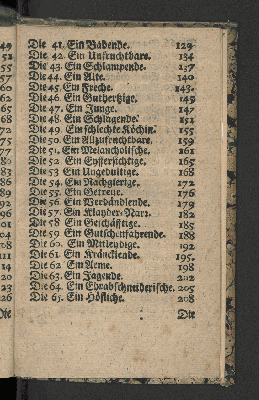 Die 41. Ein Badende. 129
Die 42. Ein Unfruchtbare. 134
Die 43. Ein Schlampende. 137
Die 44. Ein Alte. 140
Die 45. Ein Freche. 143.
Die 46. Ein Guthertzige. 145
Die 47. Ein Junge. 147
Die 48. Ein Schlagende. 151
Die 49. Ein schlechte Köchin. 155
Die 50. Ein Allzufruchtbare. 159
Die 51. Ein Melancholische. 161
Die 52. Ein Eyffersichtige. 165
Die 53. Ein Ungedultige. 168
Die 54. Ein Rachgierige. 172
Die 55. Ein Getreue. 176
Die 56. Ein Verbändlende. 179
Die 57. Ein Klayder-Narr. 182
Die 58. Ein Geschäfftige. 185
Die 59. Ein Gutschenfahrende. 188
Die 60. Ein Mitleydige. 192
Die 61. Ein Kränckende. 195.
Die 62. Ein Arme. 198
Die 63. Ein Jagende. 202
Die 64. Ein Ehrabschneiderische. 205
Die 65. Ein Höfliche. 208
Die